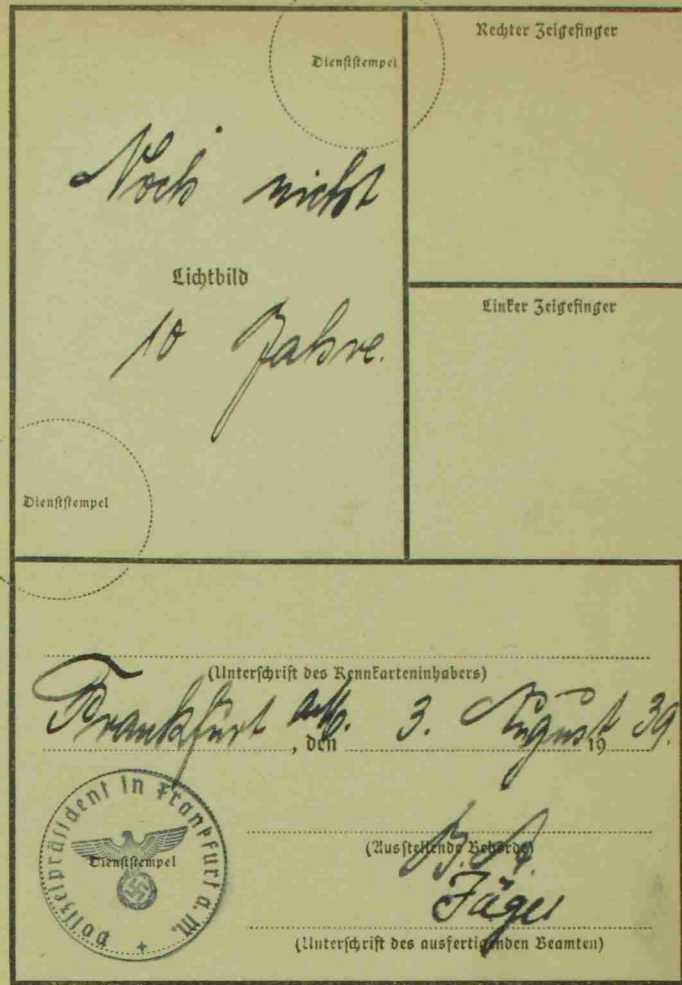 Dienststempel
Rechter Zeigefinger
Noch nicht
Lichtbild
10 Jahre.
Linker Zeigefinger
Dienststempel
(Unterschrift des Kennkarteninhabers)
Frankfurt a/M., den 3. August 1939.
Polizeipräsident in Frankfurt a. M.
Dienststempel
(Ausstellende Behörde)
Jäger
(Unterschrift des ausfertigenden Beamten)